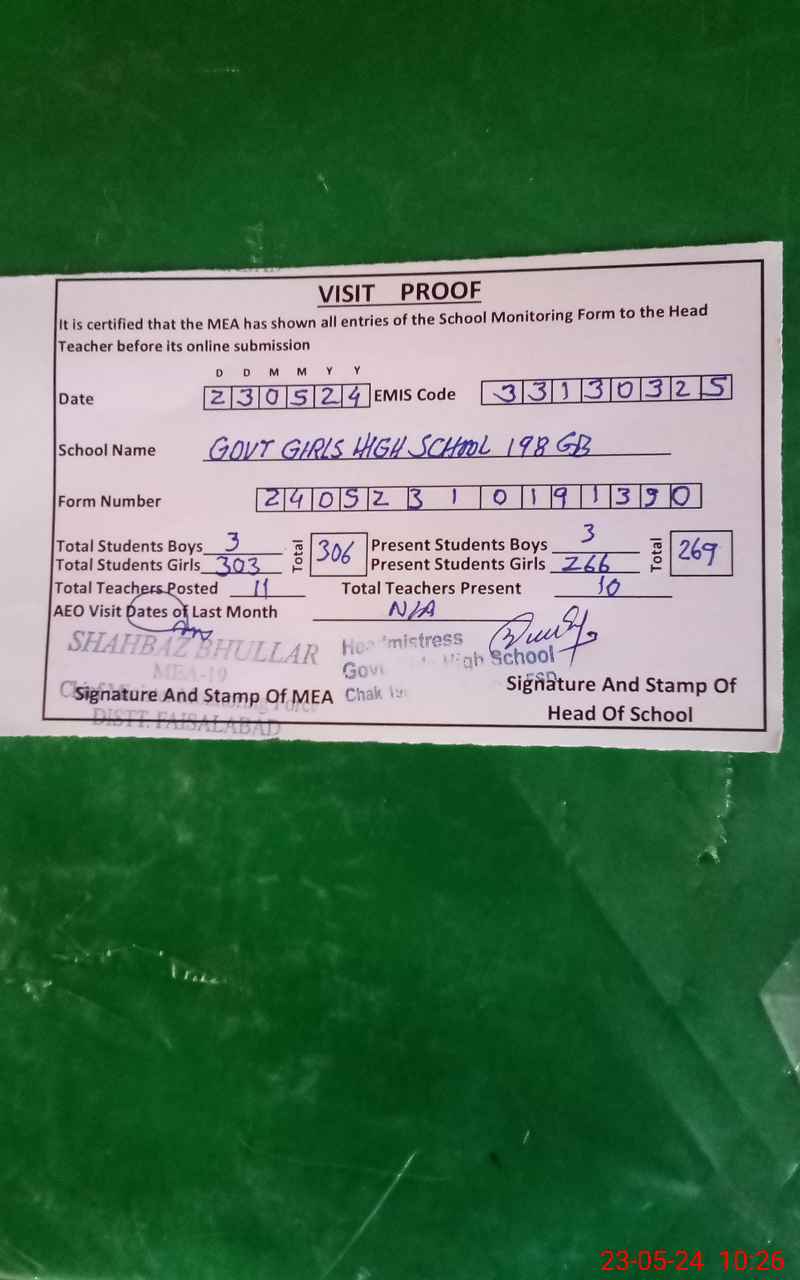 VISIT PROOF
It is certified that the MEA has shown all entries of the School Monitoring Form to the Head
Teacher before its online submission
D D M M Y Y
Date 230524 EMIS Code 33130325
School Name GOVT GIRLS HIGH SCHOOL 198 GB
Form Number 24052310191390
Total Students Boys 3 Total 306 Present Students Boys 3 Total 269
Total Students Girls 303 Present Students Girls 266
Total Teachers Posted 11 Total Teachers Present 10
AEO Visit Dates of Last Month N/A
SHAHBAZ BHULLAR
MEA-19
DISTT. FAISALABAD
Signature And Stamp Of MEA
High School
Chak
Signature And Stamp Of
Head Of School
23-05-24 10:26